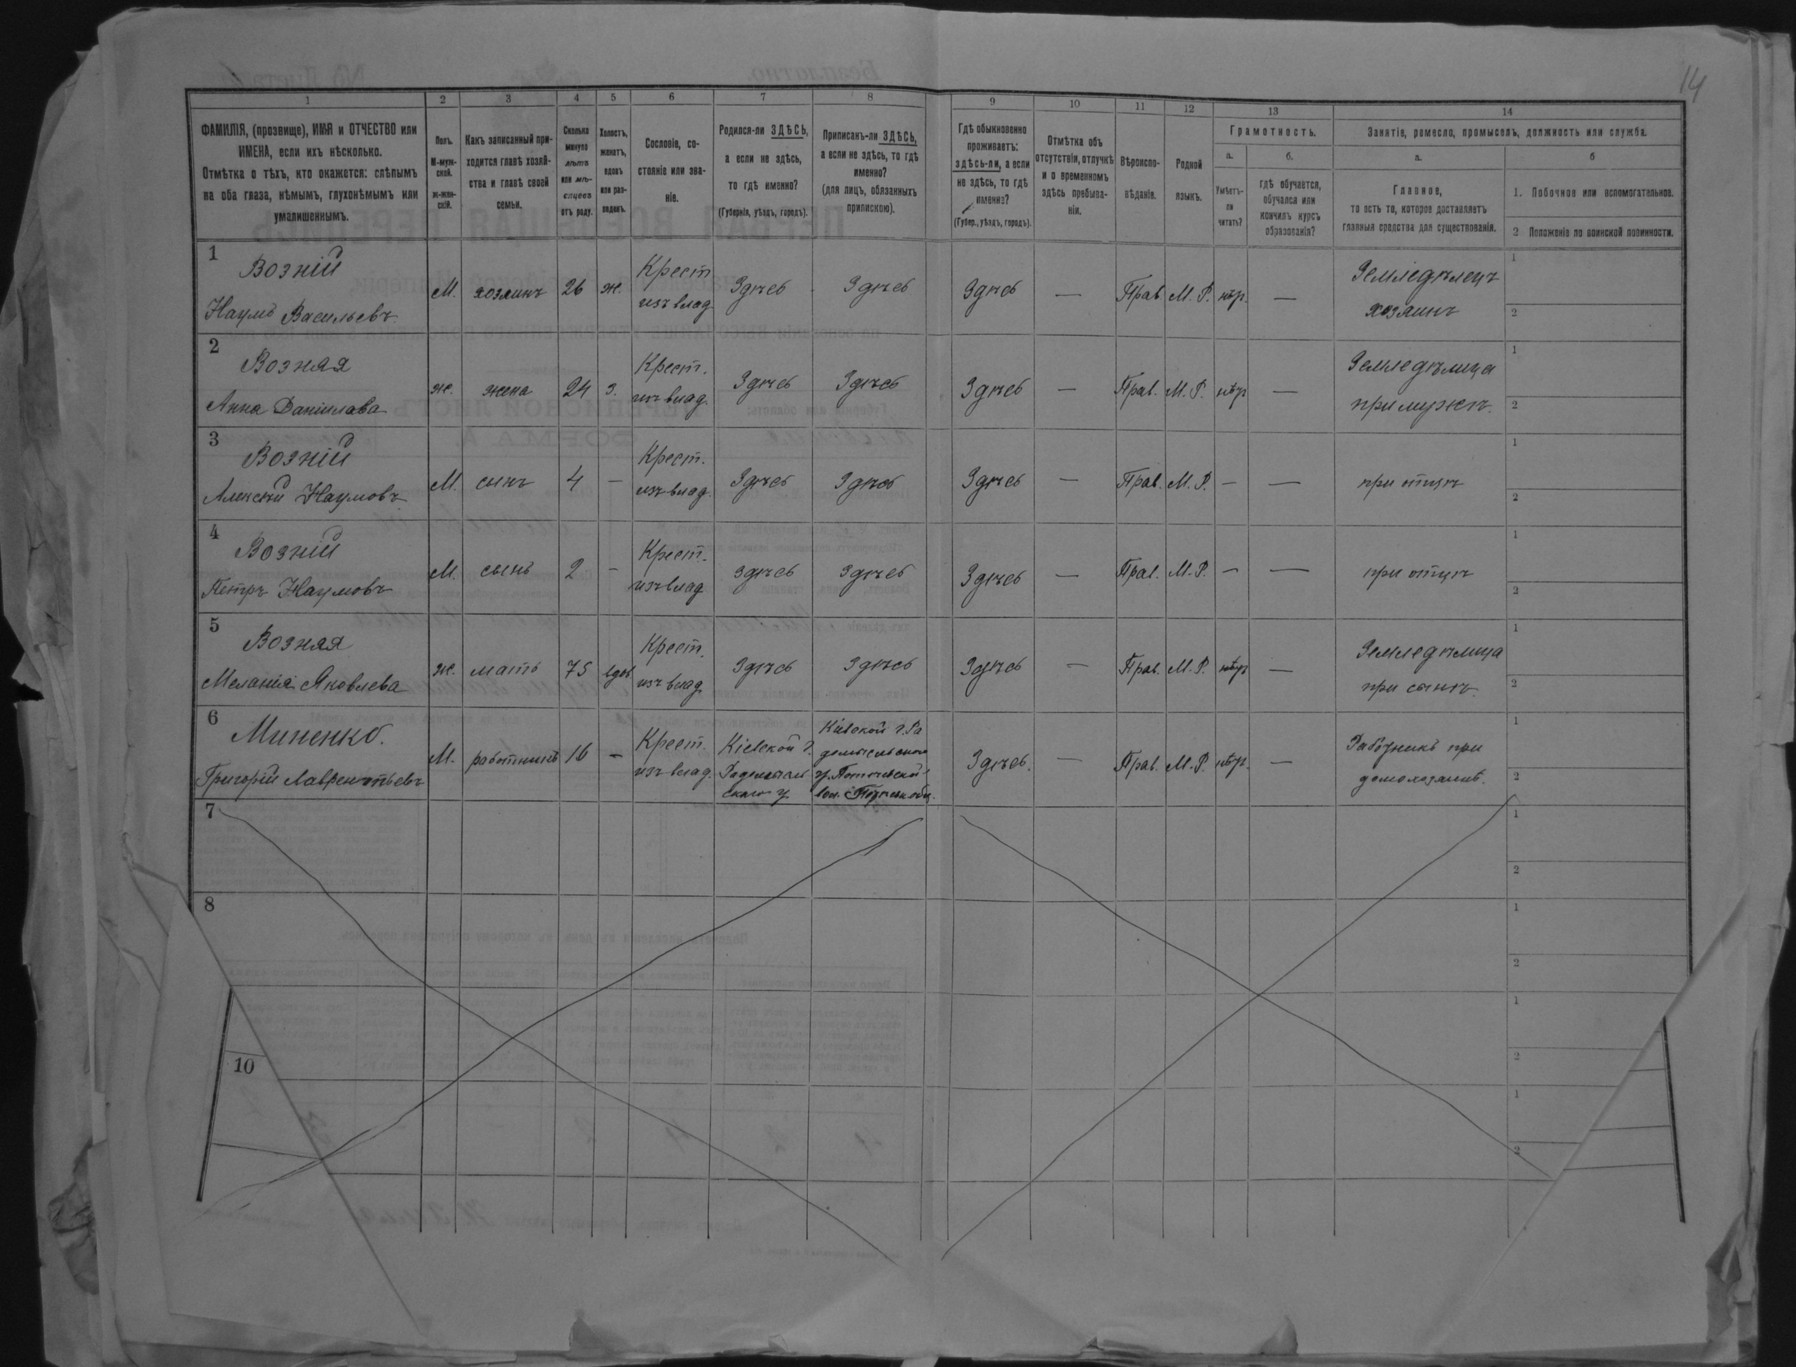 14
1 2 3 4 5 6 7 8 9 10 11 12 13 14
ФАМИЛІЯ, (прозвище), ИМЯ и ОТЧЕСТВО или
ИМЕНА, если ихъ нѣсколько.
Отмѣтка о тѣхъ, кто окажется: слѣпымъ
на оба глаза, нѣмымъ, глухонѣмымъ или
умалишеннымъ.
Полъ.
М-муж-
ской.
ж-жен-
скій.
Какъ записанный при-
ходится главѣ хозяй-
ства и главѣ своей
семьи.
Сколько
минуло
лѣтъ
или мѣ-
сяцевъ
отъ роду.
Холостъ,
женатъ,
вдовъ
или раз-
веденъ.
Сословіе, со-
стояніе или зва-
ніе.
Родился-ли ЗДѢСЬ,
а если не здѣсь,
то гдѣ именно?
(Губернія, уѣздъ, городъ).
Приписанъ-ли ЗДѢСЬ,
а если не здѣсь, то гдѣ
именно?
(для лицъ, обязанныхъ
припискою).
Гдѣ обыкновенно
проживаетъ:
здѣсь-ли, а если
не здѣсь, то гдѣ
именно?
(Губер., уѣздъ, городъ).
Отмѣтка объ
отсутствіи, отлучкѣ
и о временномъ
здѣсь пребыва-
ніи.
Вѣроиспо-
вѣданіе.
Родной
языкъ.
Грамотность.
а.
Умѣетъ-
ли
читать?
б.
Гдѣ обучается,
обучался или
кончилъ курсъ
образованія?
Занятіе, ремесло, промыселъ, должность или служба.
а.
Главное,
то есть то, которое доставляетъ
главныя средства для существованія.
б
1. Побочное или вспомогательное.
2 Положеніе по воинской повинности.
1 Возній Крест Земледѣлецъ 1
Наумъ Васильевъ М. хозяинъ 26 ж. изъ влад. Здѣсь Здѣсь Здѣсь — Прав. М. Р. нѣтъ — хозяинъ 2
2 Возняя Крест. Земледѣлица 1
Анна Данилова ж. жена 24 з. изъ влад. Здѣсь Здѣсь Здѣсь — Прав. М. Р. нѣтъ — при мужѣ. 2
3 Возній Крест. 1
Алексѣй Наумовъ М. сынъ 4 — изъ влад. Здѣсь Здѣсь Здѣсь — Прав. М. Р. — — при отцѣ 2
4 Возній Крест. 1
Петръ Наумовъ М. сынъ 2 — изъ влад. здѣсь здѣсь Здѣсь — Прав. М. Р. — — при отцѣ 2
5 Возняя Крест. Земледѣлица 1
Меланія Яковлева ж. мать 75 вдов. изъ влад. Здѣсь Здѣсь Здѣсь — Прав. М. Р. нѣтъ — при сынѣ. 2
6 Миненко. Крест. 1
Григорій Лаврентьевъ М. работникъ 16 — изъ влад.
Кіевской г.
Радомысль
скаго у.
Кіевской г. Ра
домысльскаго
у. Потіевской
вол.
Здѣсь. — Прав. М. Р. нѣтъ —
Работникъ при
домохозяинѣ. 2
7 1
2
8 1
2
1
2
10 1
2